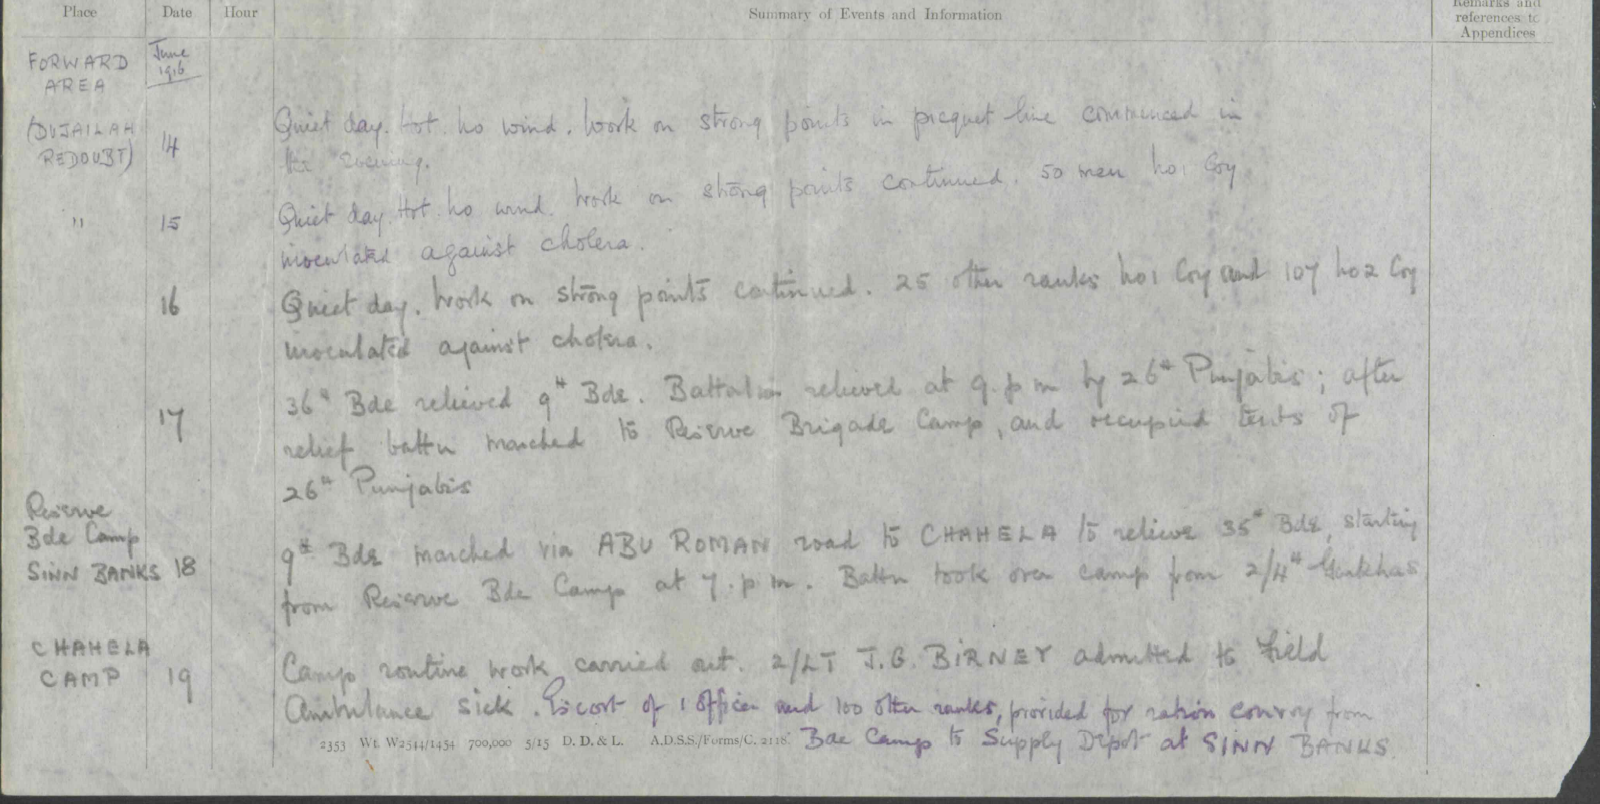 Place Date Hour Summary of Events and Information Remarks and references to Appendices
FORWARD AREA June 1916
(DUJAILAH REDOUBT) 14 Quiet day. Hot. No wind. Work on strong points in picquet line commenced in
the evening.
" 15 Quiet day. Hot. No wind. Work on strong points continued. 50 men No 1 Coy
inoculated against cholera.
16 Quiet day. Work on strong points continued. 25 other ranks No 1 Coy and 107 No 2 Coy
inoculated against cholera.
17 36th Bde relieved 9th Bde. Battalion relieved at 9. p m by 26th Punjabis; after
relief battn marched to Reserve Brigade Camp, and occupied tents of
26th Punjabis
Reserve
Bde Camp
SINN BANKS 18 9th Bde marched via ABU ROMAN road to CHAHELA to relieve 35th Bde, starting
from Reserve Bde Camp at 7. p m. Battn took over camp from 2/4th Gurkhas
CHAHELA
CAMP 19 Camp routine work carried out. 2/LT J.G. BIRNEY admitted to Field
Ambulance sick. Escort of 1 Officer and 100 other ranks, provided for ration convoy from
Bde Camp to Supply Depot at SINN BANKS.
2353 Wt. W2544/1454 700,000 5/15 D. D. & L. A.D.S.S./Forms/C. 2118.